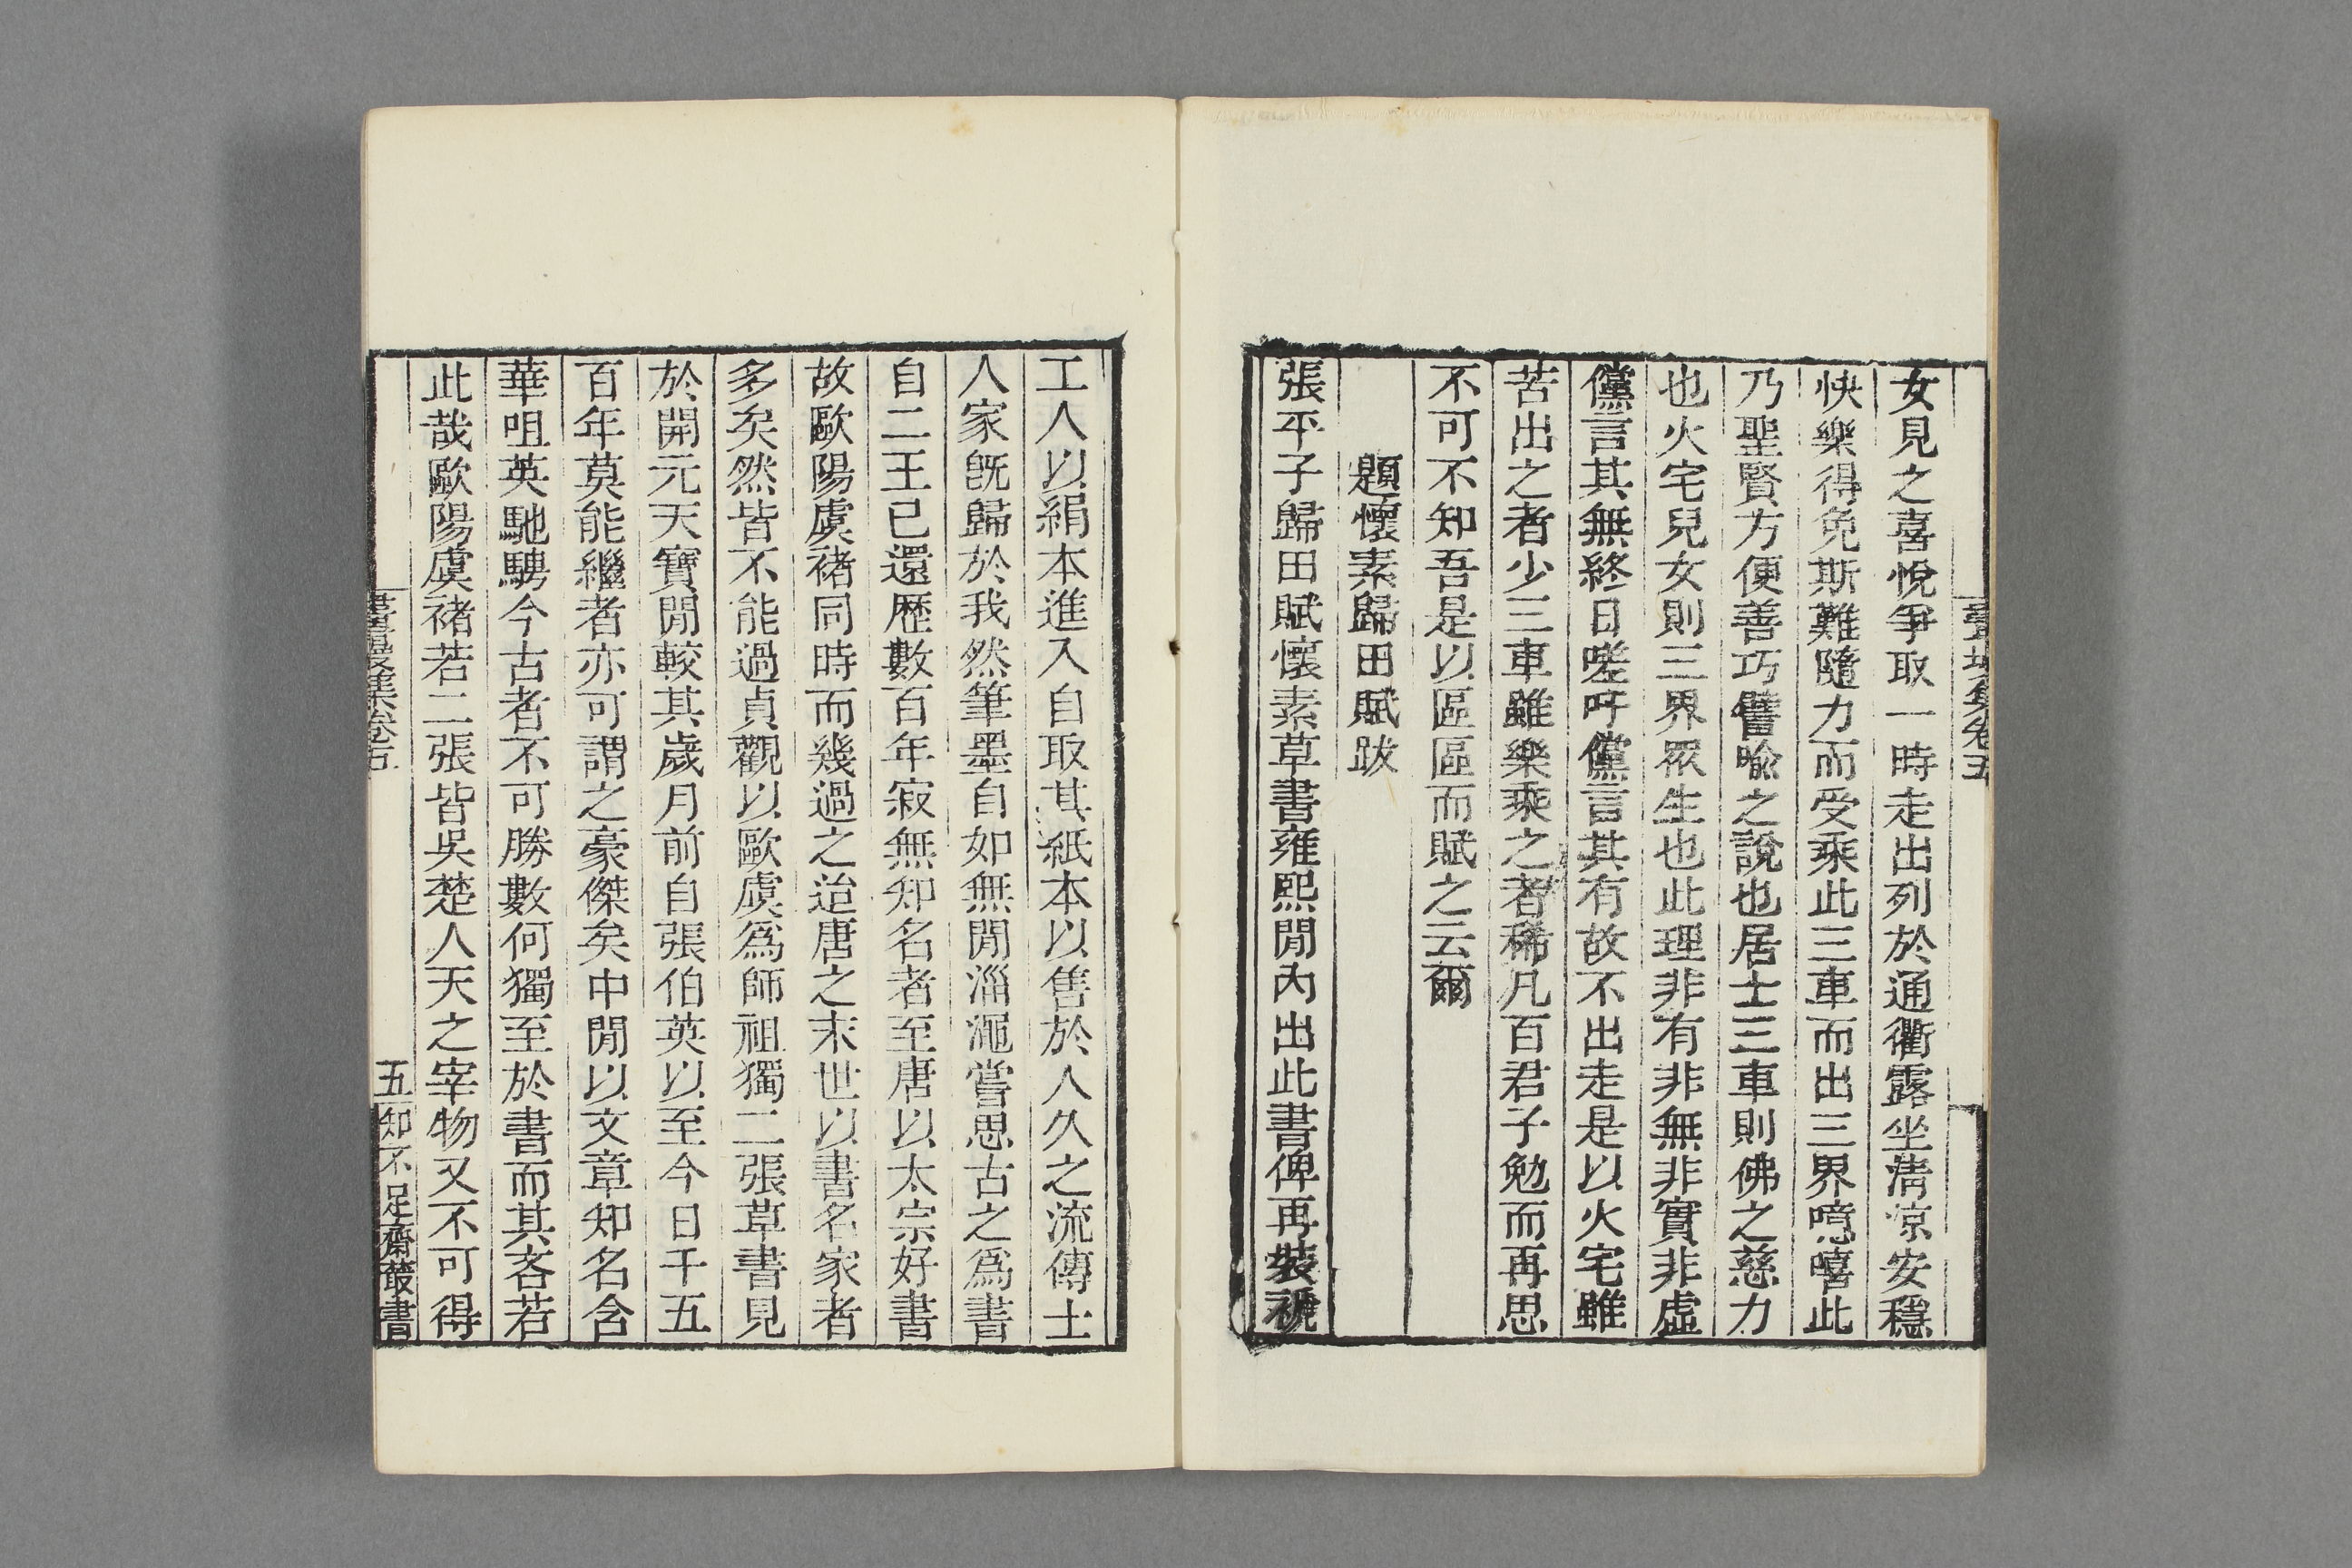 女見之喜悅爭取一時走出列於通衢露坐淸涼安穩
快樂得免斯難隨力而受乘此三車而出三界噫嘻此
乃聖賢方便善巧譬喻之說也居士三車則佛之慈力
也火宅兒女則三界眾生也此理非有非無非實非虛
儻言其無終日嗟吁儻言其有故不出走是以火宅雖
苦出之者少三車雖樂乘之者稀凡百君子勉而再思
不可不知吾是以區區而賦之云爾
題懷素歸田賦跋
張平子歸田賦懷素草書雍熙閒內出此書俾再裝褫
工人以絹本進入自取其紙本以售於人久之流傳士
人家旣歸於我然筆墨自如無閒淄澠嘗思古之爲書
自二王已還歷數百年寂無知名者至唐以太宗好書
故歐陽虞褚同時而幾過之迨唐之末世以書名家者
多矣然皆不能過貞觀以歐虞爲師祖獨二張草書見
於開元天寶閒較其歲月前自張伯英以至今日千五
百年莫能繼者亦可謂之豪傑矣中閒以文章知名含
華咀英馳騁今古者不可勝數何獨至於書而其吝若
此哉歐陽虞褚若二張皆吳楚人天之宰物又不可得
五 知不足齋叢書